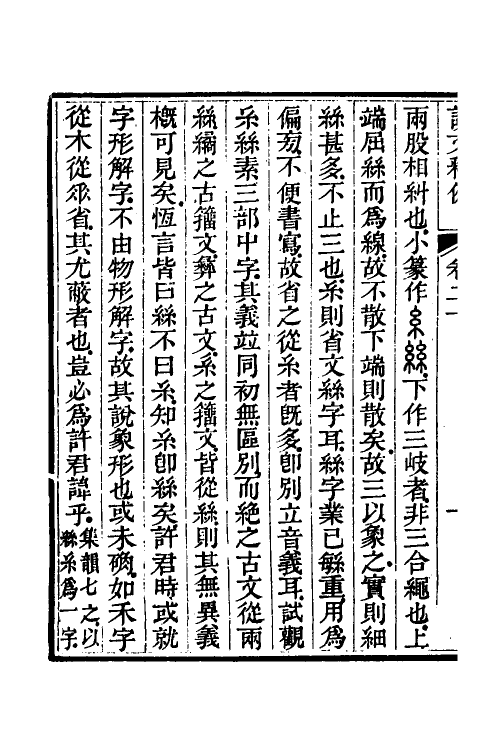 說文釋例 卷二 一
兩股相糾也小篆作糸絲下作三歧者非三合繩也上
端屈絲而爲線故不散下端則散矣故三以象之實則細
絲甚多不止三也糸則省文絲字耳絲字業已緐重用爲
偏㫄不便書寫故省之從糸者旣多卽別立音義耳試觀
糸絲素三部中字其義竝同初無區別而絕之古文從兩
絲繭之古籀文彝之古文系之籀文皆從絲則其無異義
槪可見矣恆言皆曰絲不曰糸知糸卽絲矣許君時或就
字形解字不由物形解字故其說象形也或未確如禾字
從木從𠂹省其尤蔽者也豈必爲許君諱乎集韻七之以
絲糸爲一字